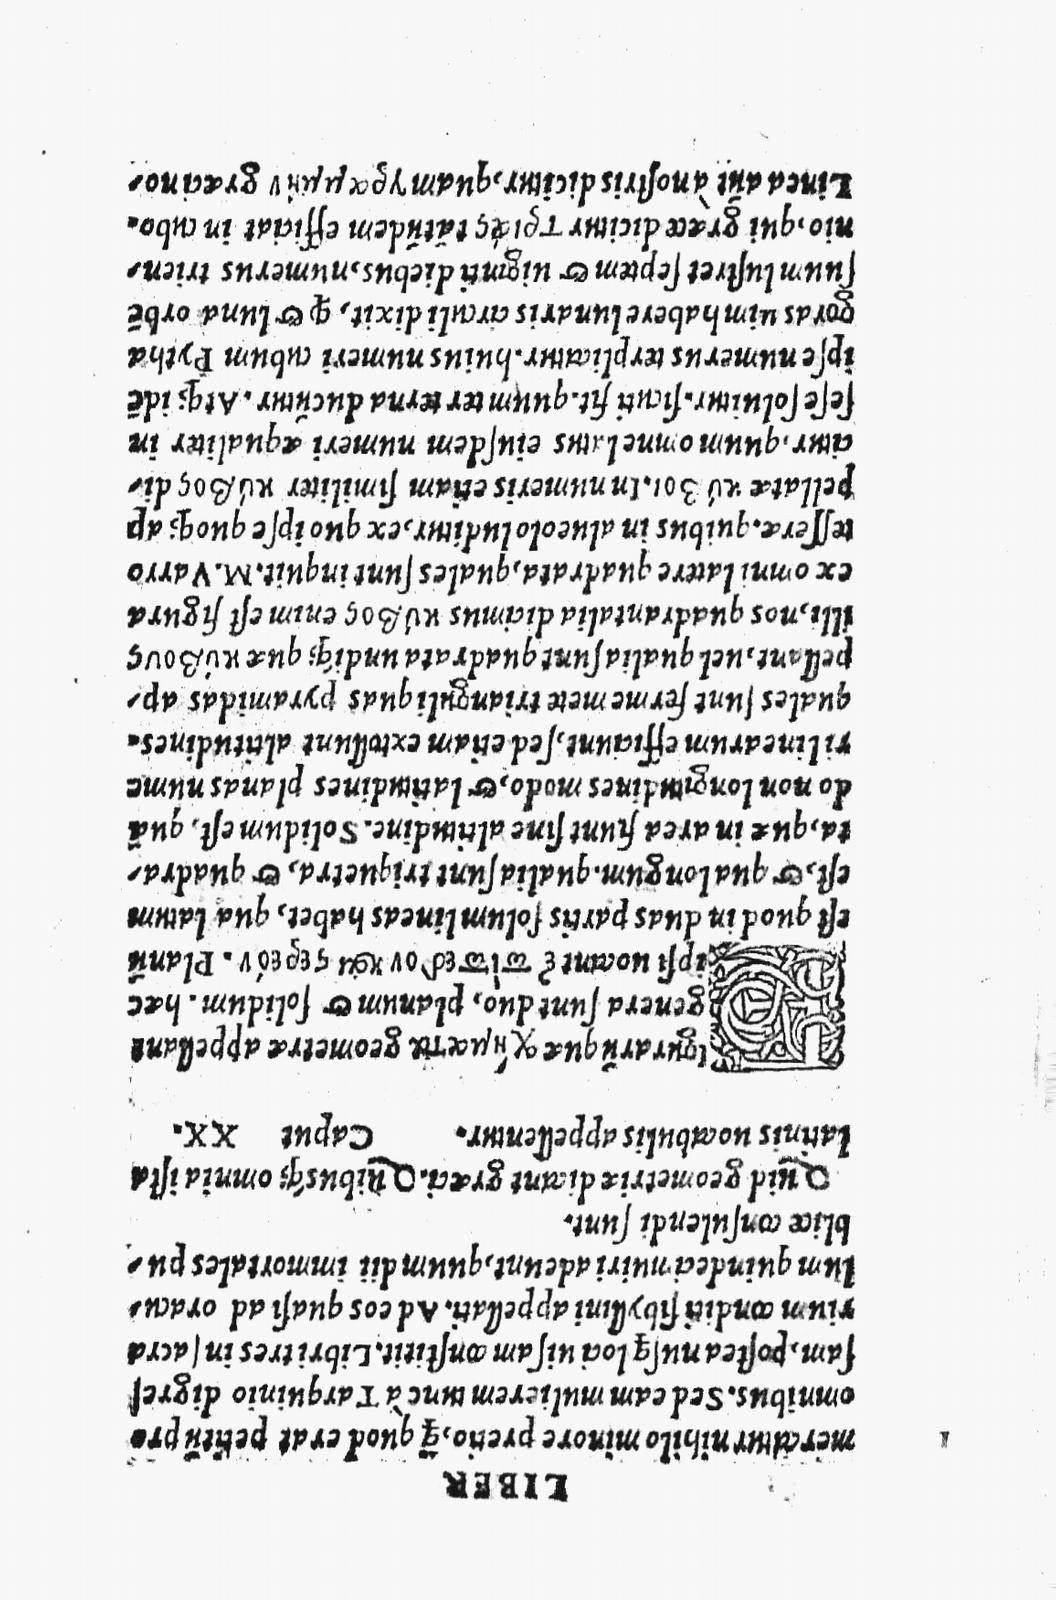 LIBER
mercatur nihilo minore precio, q̃ quod erat petitũ pro
omnibus. Sed eam mulierem tunc à Tarquinio digreſ
ſam, poſtea nuſq̃ loci uiſam conſtitit. Libri tres in ſacra
rium conditi ſibyllini appellati. Ad eos quaſi ad oracu-
lum quindecimuiri adeunt, quum dii immortales pu-
blice conſulendi ſunt.
Quid geometriæ dicant græci. Quibuſq; omnia iſta
latinis uocabulis appellentur. Caput XX.
Figurarũ quæ χήματα geometræ appellant
genera ſunt duo, planum & ſolidum. hæc
ipſi uocant ἐπίπεδον καὶ στερεόν. Planũ
eſt quod in duas partis ſolum lineas habet, qua latum
eſt, & qua longum. qualia ſunt triquetra, & quadra-
ta, quæ in area fiunt ſine altitudine. Solidum eſt, quã
do non longitudines modo, & latitudines planas nume
ri linearum efficiunt, ſed etiam extollunt altitudines.
quales ſunt ferme metæ trianguli quas pyramidas ap-
pellant, uel qualia ſunt quadrata undiq; quæ κύβους
illi, nos quadrantalia dicimus κύβος enim eſt figura
ex omni latere quadrata, quales ſunt inquit. M. Varro
teſſeræ. quibus in alueolo luditur, ex quo ipſe quoq; ap
pellatæ κύβοι. In numeris etiam ſimiliter κύβος di-
citur, quum omne latus eiuſdem numeri æqualiter in
ſeſe ſoluitur. ſicuti fit. quum ter terna ducuntur. Atq; idẽ
ipſe numerus terplicatur. huius numeri cubum Pytha
goras uim habere lunaris circuli dixit, q & luna orbẽ
ſuum luſtret ſeptem & uiginti diebus, numerus trien-
nio, qui græce dicitur Τριὰς tãtũdem efficiat in cubo.
Linea aũt à noſtris dicitur, quam γραμμὴν græci no-